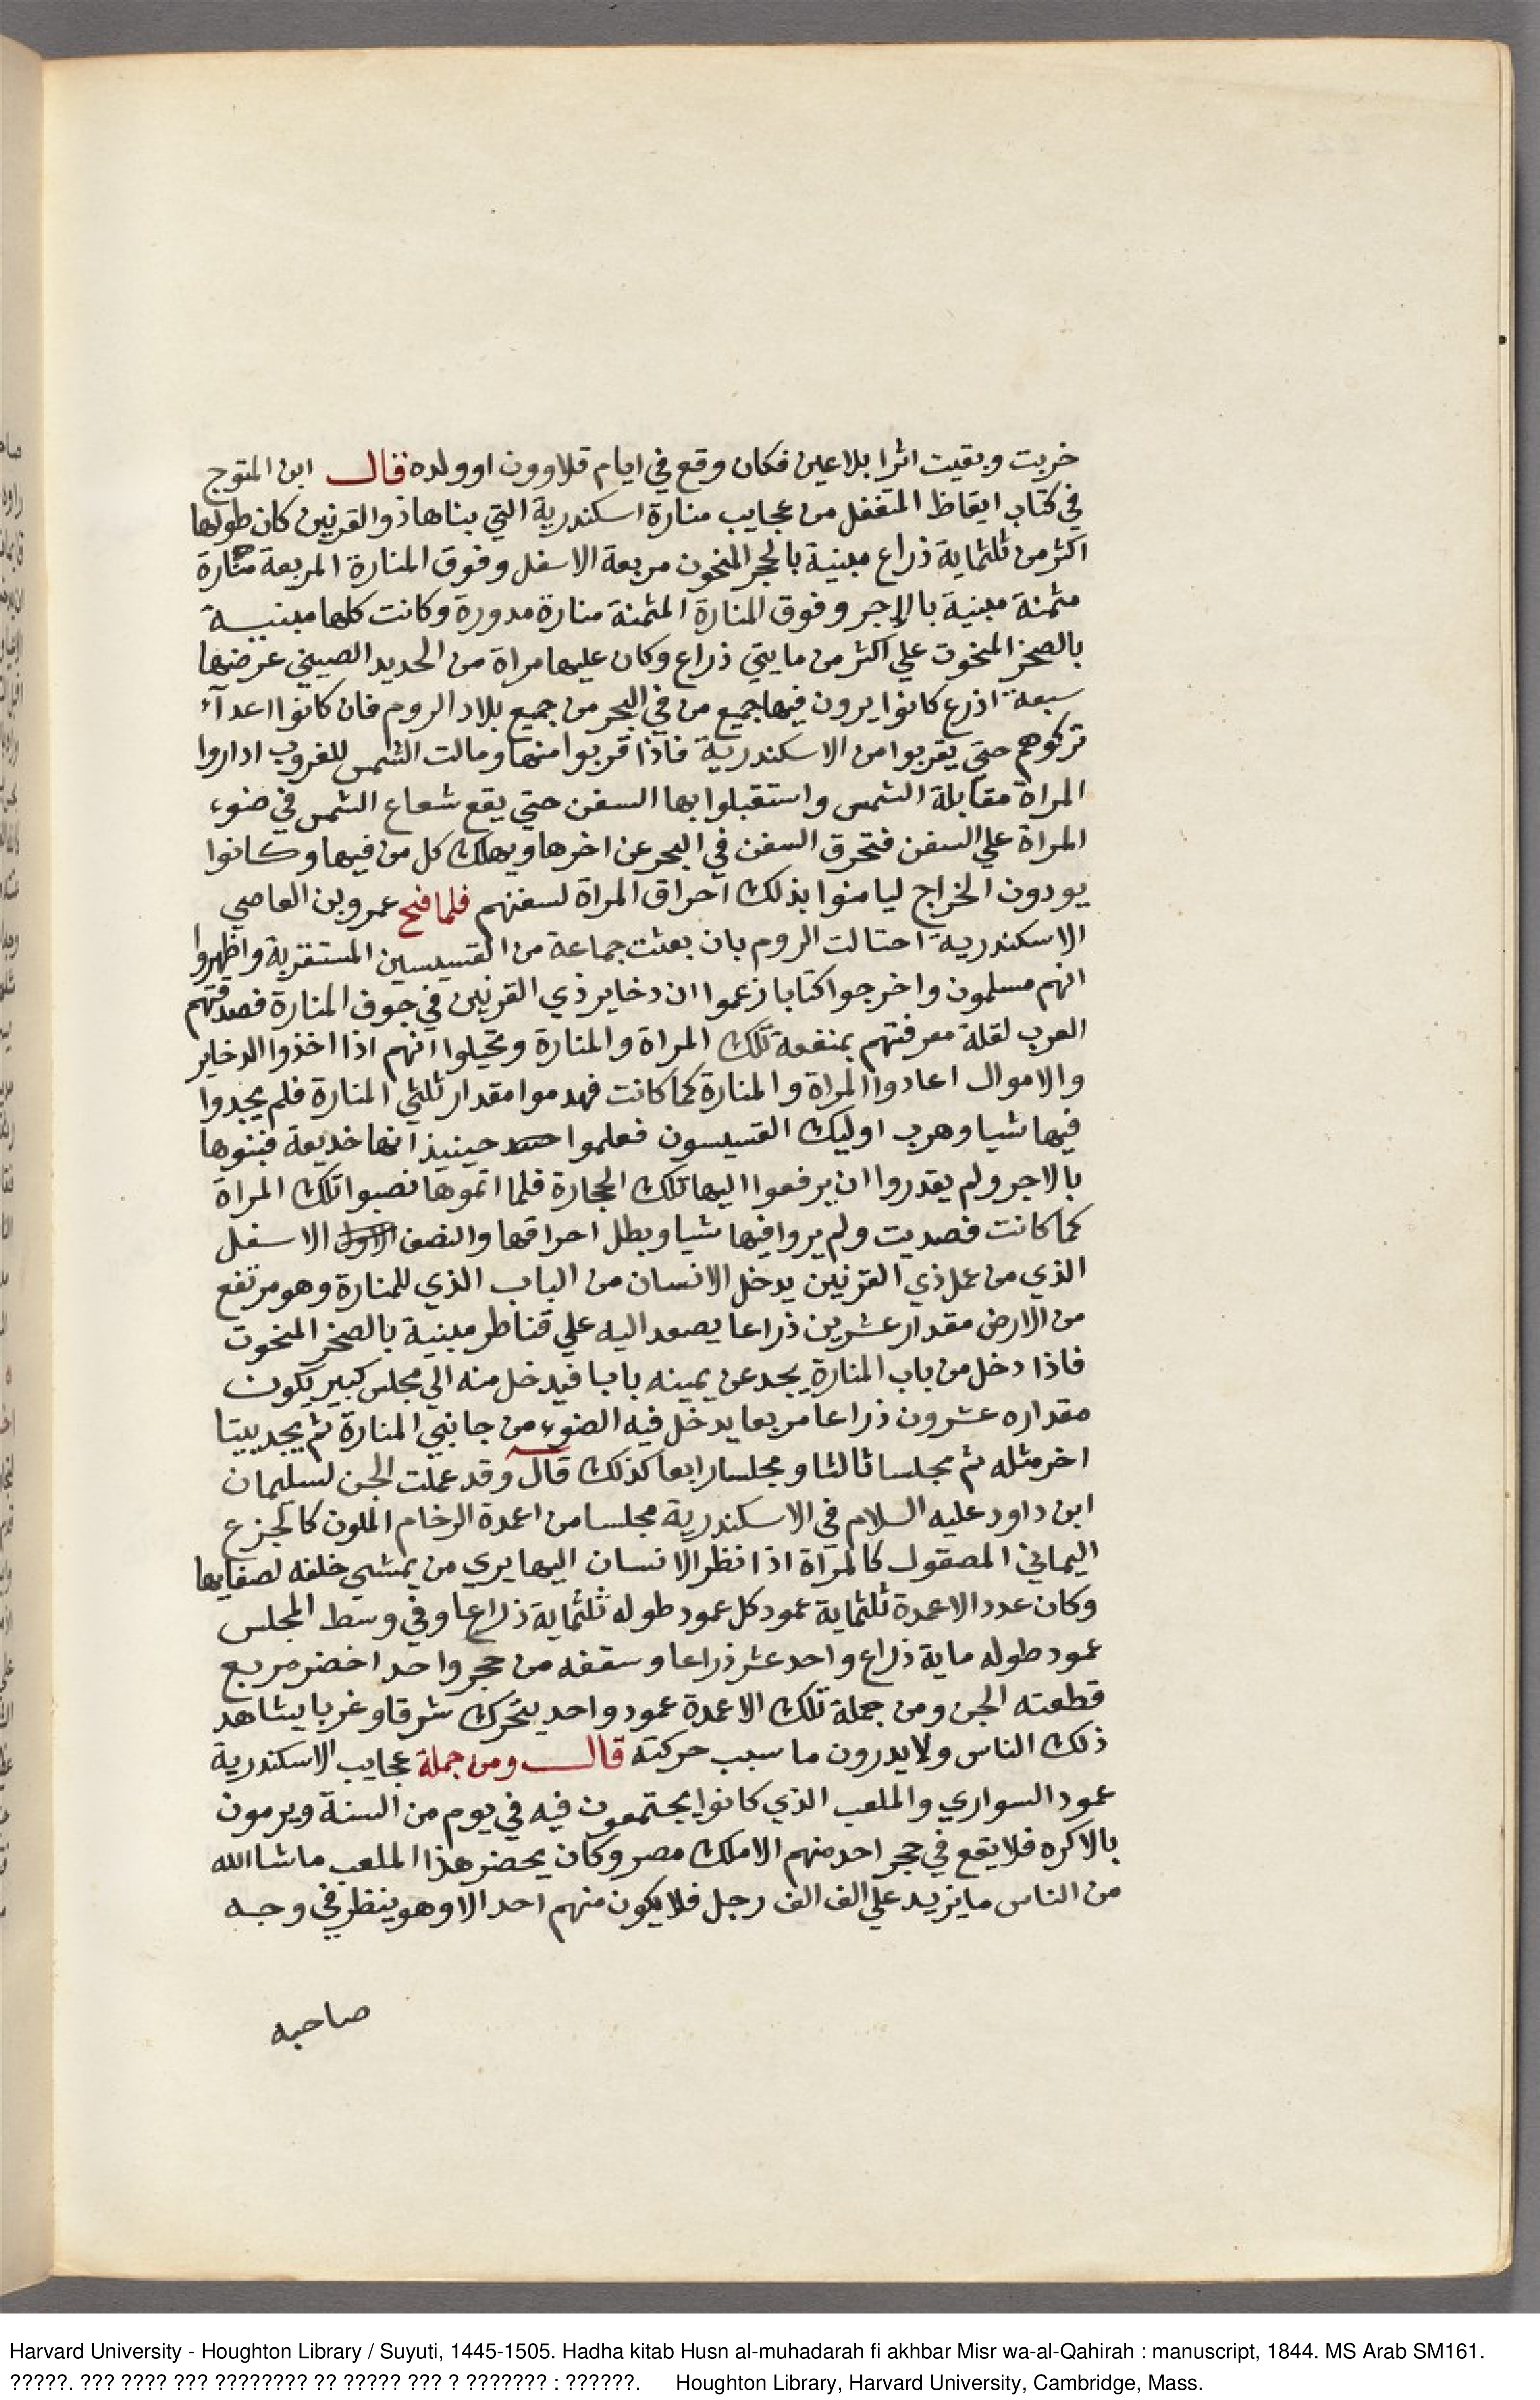 خربت وبقيت اثرا بلاعين فكان وقع في ايام قلاوون اوولده قال ابن المتوج
في كتاب ايقاظ المتغفل من عجايب منارة اسكندرية التي بناها ذو القرنين كان طولها
اكثر من ثلثماية ذراع مبنية بالحجر المنحوت مربعة الاسفل وفوق المنارة المربعة منارة
مثمنة مبنية بالاجر وفوق المنارة المثمنة منارة مدورة وكانت كلها مبنيــة
بالصخر المنحوت علي اكثر من مايتي ذراع وكان عليها مراة من الحديد الصيني عرضها
سبعة اذرع كانوا يرون فيها جميع من في البحر من جميع بلاد الروم فان كانوا اعدآء
تركوهم حتي يقربوا من الاسكندرية فاذا قربوا منها ومالت الشمس للغروب اداروا
المراة مقابلة الشمس واستقبلوا بها السفن حتي يقع شعاع الشمس في ضوء
المراة علي السفن فتحرق السفن في البحر عن اخرها ويهلك كل من فيها وكانوا
يودون الخراج ليامنوا بذلك احراق المراة لسفنهم فلما فتح عمرو بن العاصي
الاسكندرية احتالت الروم بان بعثت جماعة من القسيسين المستعربة واظهروا
انهم مسلمون واخرجوا كتابا زعموا ان دخاير ذي القرنين في جوف المنارة فصدقتهم
العرب لقلة معرفتهم بمنفعة تلك المراة والمنارة وتخيلوا انهم اذا اخذوا الدخاير
والاموال اعادوا المراة والمنارة كما كانت فهدموا مقدار ثلثي المنارة فلم يجدوا
فيها شيا وهرب اوليك القسيسون فعلموا حينيذ انها خديعة فبنوها
بالاجر ولم يقدروا ان يرفعوا اليها تلك الحجارة فلما اتموها نصبوا تلك المراة
كما كانت فصديت ولم يروا فيها شيا وبطل احراقها والنصف الاسفل
الذي من عمل ذي القرنين يدخل الانسان من الباب الذي للمنارة وهو مرتفع
من الارض مقدار عشرين ذراعا يصعد اليه علي قناطر مبنية بالصخر المنحوت
فاذا دخل من باب المنارة يجد عن يمينه بابا فيدخل منه الي مجلس كبير يكون
مقداره عشرون ذراعا مربعا يدخل فيه الضوء من جانبي المنارة ثم يجد بيتا
اخر مثله ثم مجلسا ثالثا ومجلسا رابعا كذلك قال وقد عملت الجن لسليمان
ابن داود عليه السلام في الاسكندرية مجلسا من اعمدة الرخام الملون كالجزع
اليماني المصقول كالمراة اذا نظر الانسان اليها يري من يمشي خلفه لصفايها
وكان عدد الاعمدة ثلثماية عمود كل عمود طوله ثلثماية ذراعا وفي وسط المجلس
عمود طوله ماية ذراع واحد عشر ذراعا وسقفه من حجر واحد اخضر مربع
قطعته الجن ومن جملة تلك الاعمدة عمود واحد يتحرك شرقا وغربا يشاهد
ذلك الناس ولا يدرون ما سبب حركته قال ومن جملة عجايب الاسكندرية
عمود السواري والملعب الذي كانوا يجتمعون فيه في يوم من السنة ويرمون
بالاكره فلا يقع في حجر احد منهم الا ملك مصر وكان يحضر هذا الملعب ماشا الله
من الناس ما يزيد علي الف الف رجل فلا يكون منهم احد الا وهو ينظر في وجه
صاحبه
Harvard University - Houghton Library / Suyuti, 1445-1505. Hadha kitab Husn al-muhadarah fi akhbar Misr wa-al-Qahirah : manuscript, 1844. MS Arab SM161.
?????. ??? ???? ??? ???????? ?? ????? ??? ? ??????? : ??????. Houghton Library, Harvard University, Cambridge, Mass.